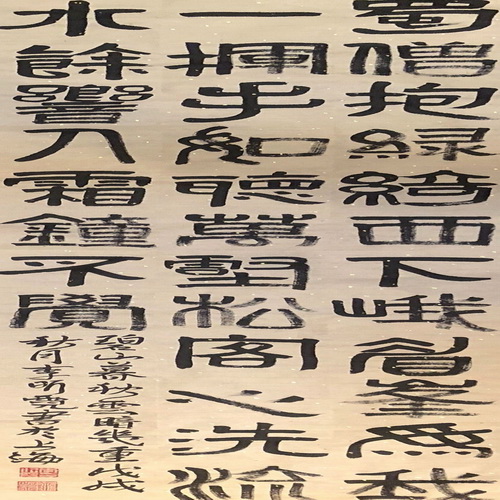 蜀僧抱綠綺西下峨眉峯為我
一揮手如聽萬壑松客心洗流
水餘響入霜鐘不覺
碧山暮秋雲暗幾重戊戌
秋月李明書於上海